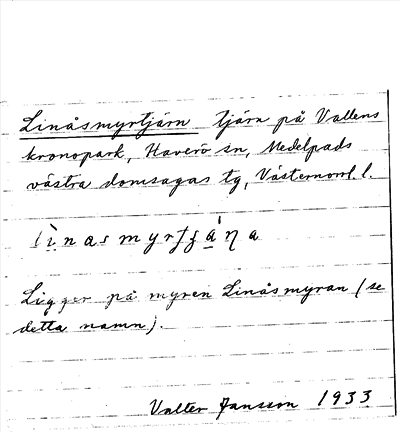 Linåsmyrtjärn tjärn på Vallens
kronopark, Haverö sn, Medelpads
västra domsagas tg, Västernorrl. l.
Ligger på myren Linåsmyran (se
detta namn).
Valter Jansson 1933